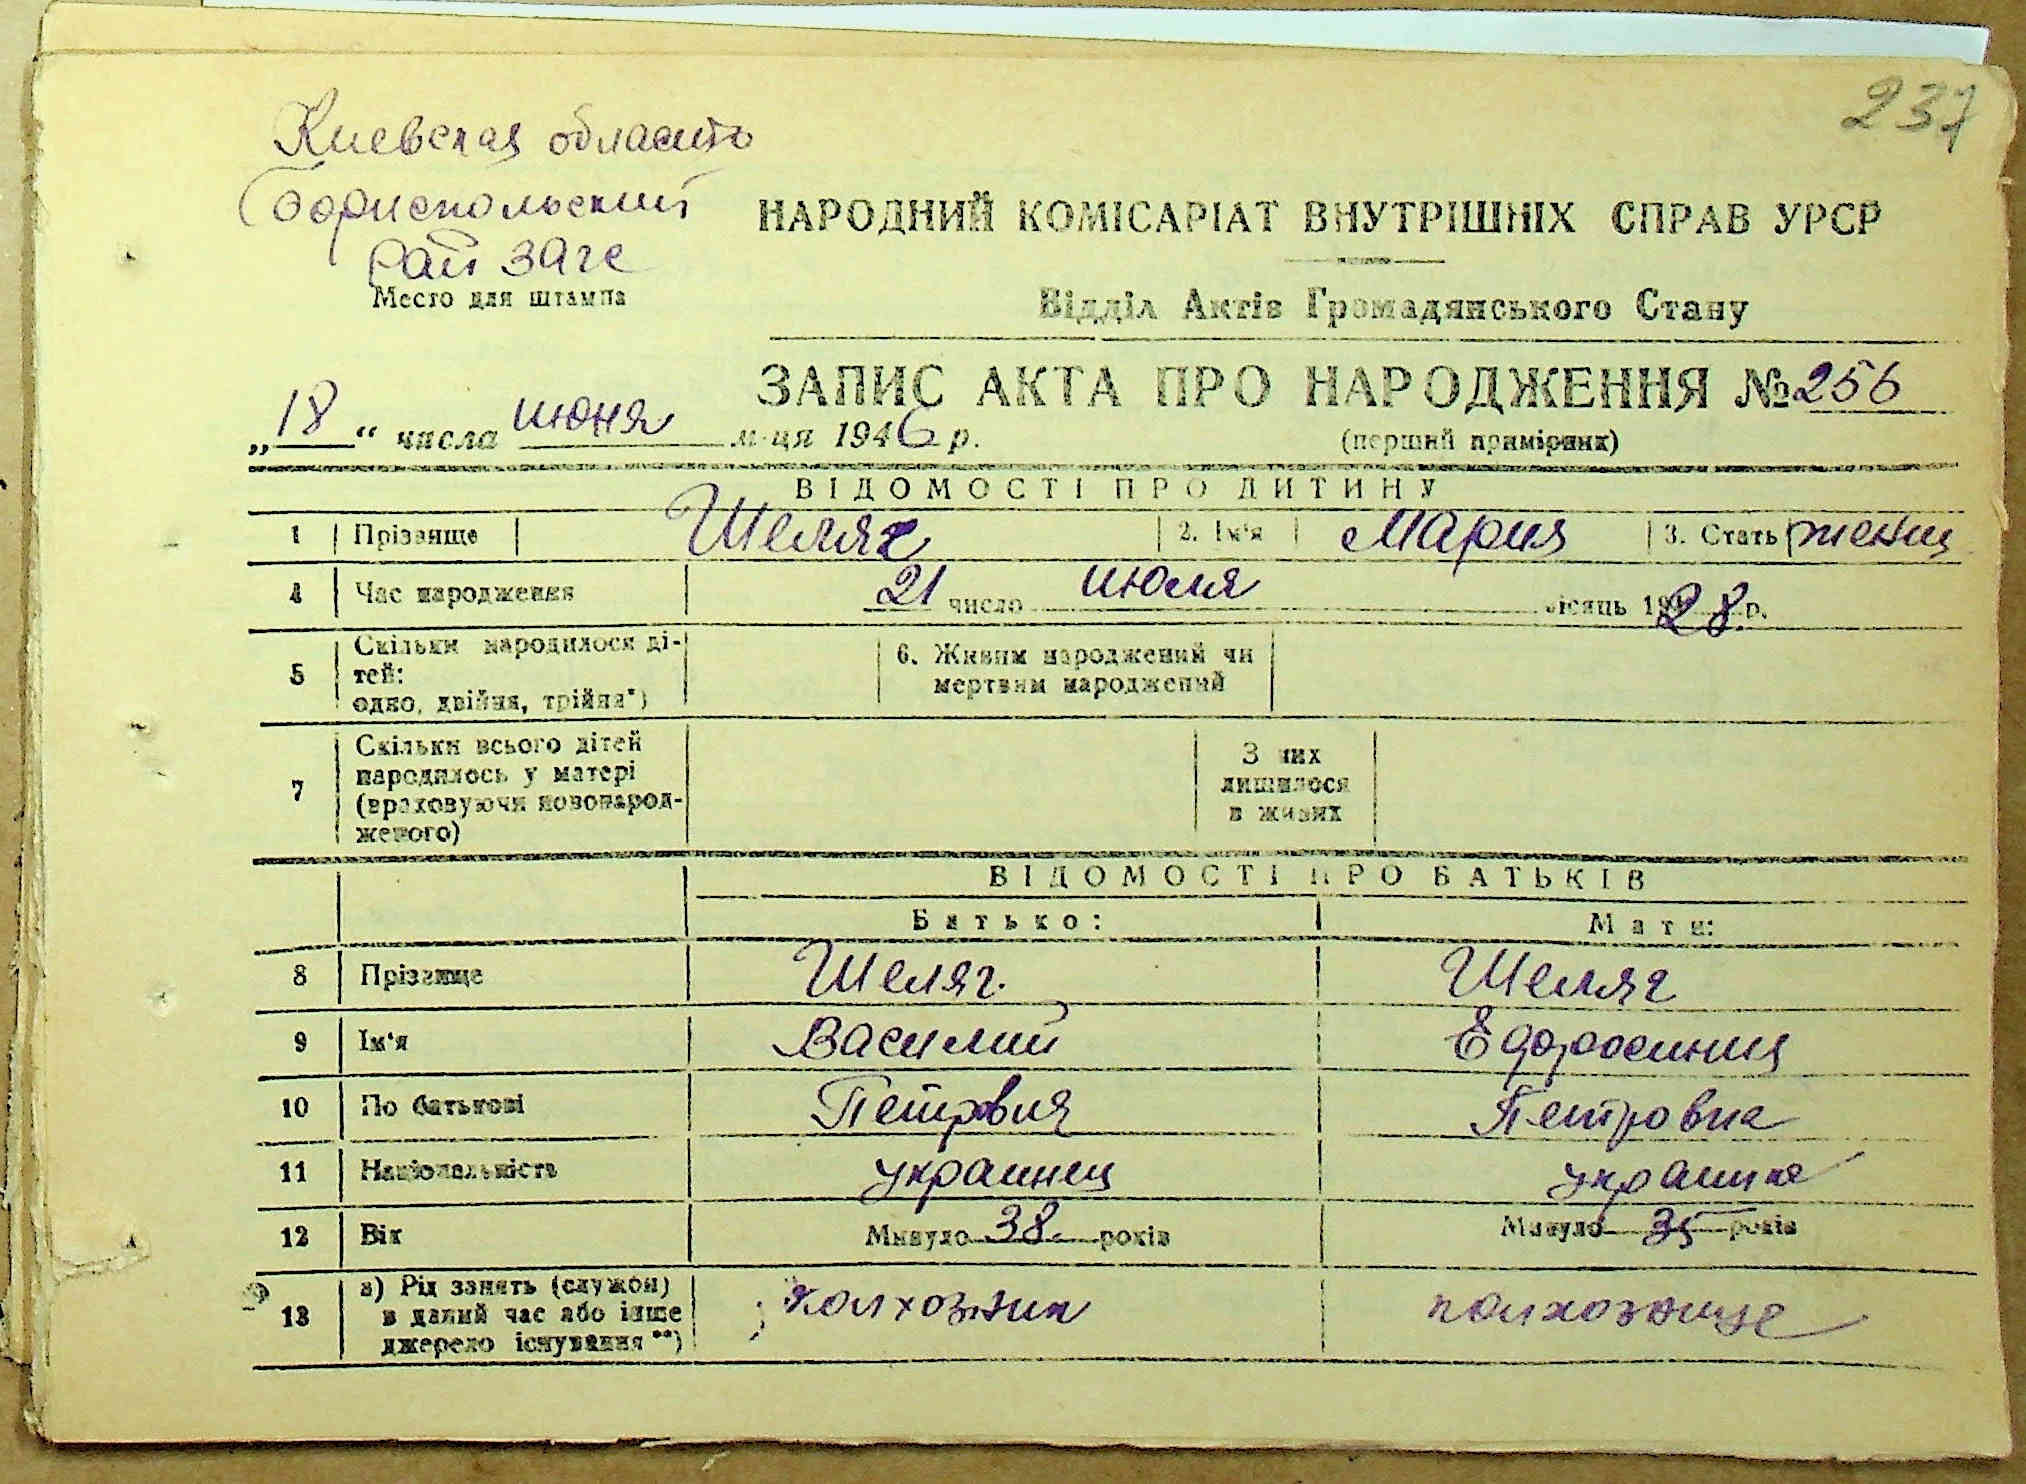 237
Киевская область
Бориспольский
рай загс
Место для штампа
НАРОДНИЙ КОМІСАРІАТ ВНУТРІШНІХ СПРАВ УРСР
Відділ Актів Громадянського Стану
ЗАПИС АКТА ПРО НАРОДЖЕННЯ № 256
„18“ числа июня м-ця 1946 р.
(перший примірник)
ВІДОМОСТІ ПРО ДИТИНУ
1 Прізвище Шеляг 2. Ім'я Мария 3. Стать женщ
4 Час народження 21 число июля місяць 1928 р.
5 Скільки народилося ді-
тей:
одно, двійня, трійня*)
6. Живим народжений чи
мертвим народжений
7 Скільки всього дітей
народилось у матері
(враховуючи новонарод-
женого)
З них
лишилося
в живих
ВІДОМОСТІ ПРО БАТЬКІВ
Батько: Мати:
8 Прізвище Шеляг. Шеляг
9 Ім'я Василий Ефросиния
10 По батькові Петровия Петровна
11 Національність украинец украинка
12 Вік Минуло 38. років Минуло 35 років
13 а) Рід занять (служби)
в даний час або інше
джерело існування**)
колхозник колхознице